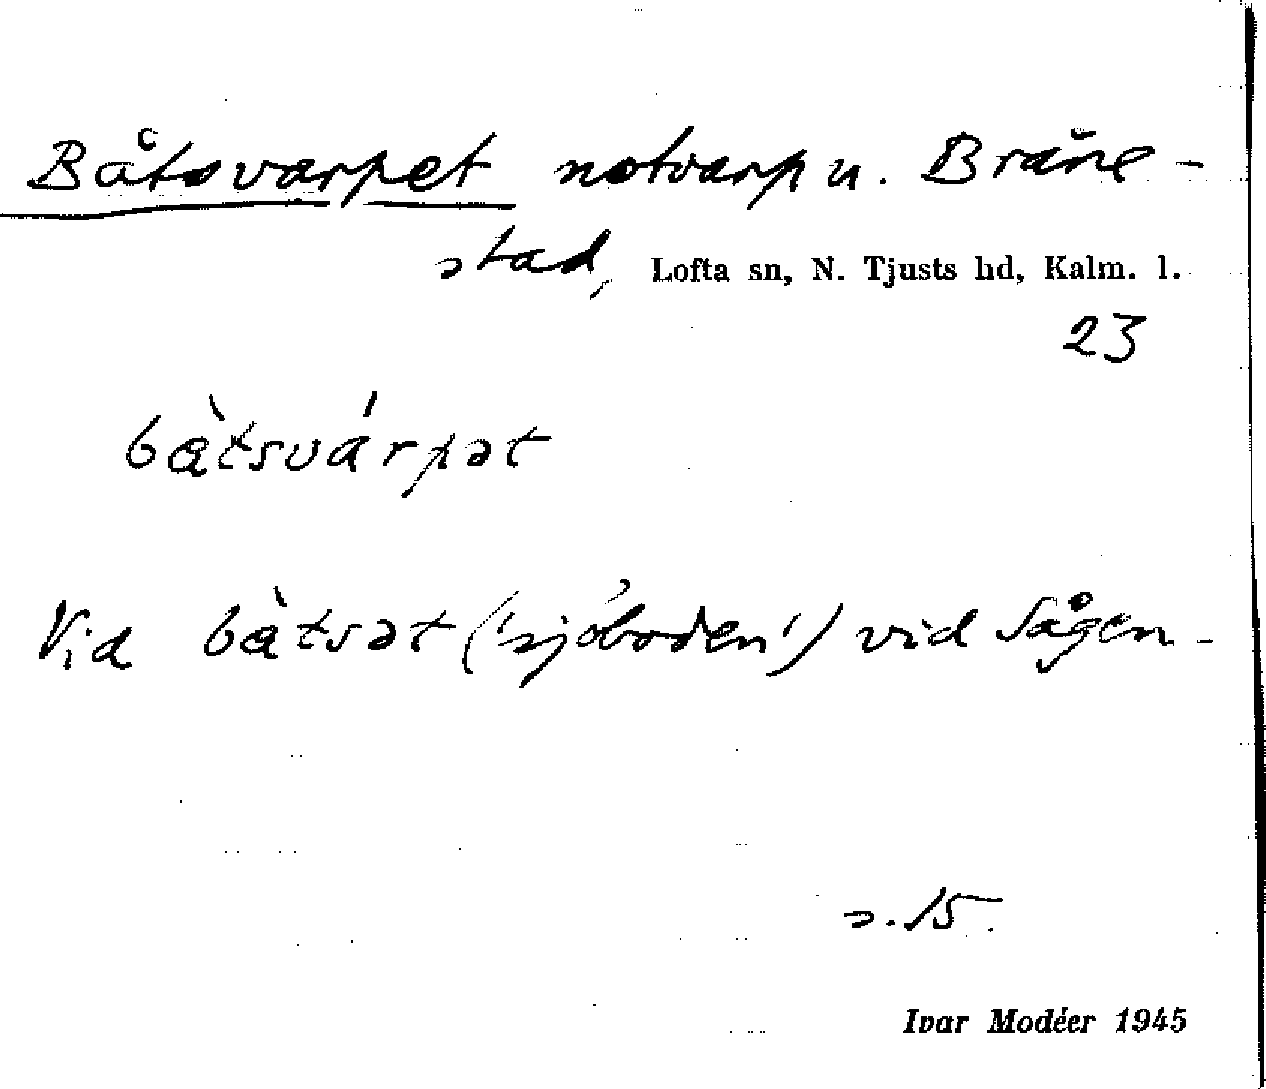 Båtsvarpet notvarp u. Bräne-
stad, Lofta sn, N. Tjusts hd, Kalm. l.
23
bàtsvárpət
Vid bàtsət ('sjöboden') vid Sågen-
s. 15.
Ivar Modéer 1945